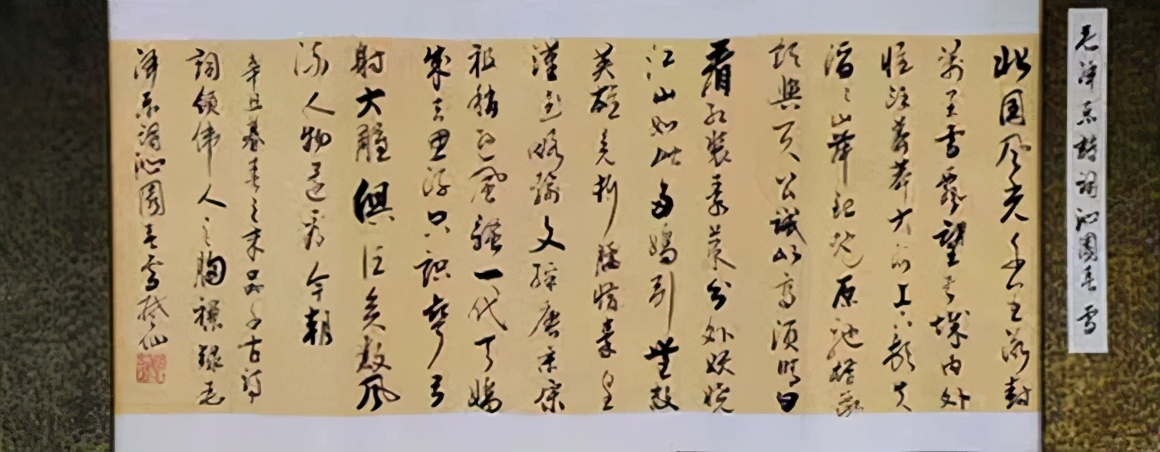 毛泽东詩詞沁園春雪
北国风光千里冰封
萬里雪飘望长城内外
惟余莽莽大河上下顿失
滔〻山舞银蛇原驰蜡象
欲與天公試比高须晴日
看红装素裹分外妖娆
江山如此多嬌引無数
英雄竞折腰惜秦皇
漢武略输文採唐宗宋
祖稍逊風骚一代天嬌
成吉思汗只識弯弓
射大雕俱往矣数风
流人物还看今朝
辛丑暮春之末品千古詩
詞领伟人之胸襟録毛
泽东詞沁園春雪